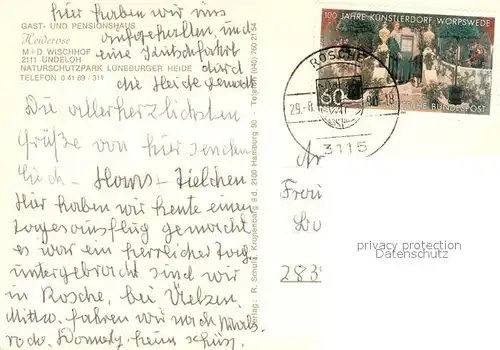 hier haben wir uns
GAST- UND PENSIONSHAUS
Heiderose
M + D WISCHHOF
2111 UNDELOH
NATURSCHUTZPARK LÜNEBURGER HEIDE
TELEFON 0 41 89 · 311
aufgehalten und
eine Kutschfahrt
durch
die Heide gemacht
Die allerherzlichsten
Grüße von hier senden
Euch - Hans +
Hier haben wir heute einen
Tagesausflug gemacht
es war ein herrlicher Tag
untergebracht sind wir
in Rosche, bei Uelzen.
fahren wir nach
heim
Verlag: R. Schulz, Kropenberg 9 d, 2100 Hamburg 90 - Telefon (040) 760 21 54
100 JAHRE KÜNSTLERDORF WORPSWEDE
60
DEUTSCHE BUNDESPOST
ROSCHE
29.-8.
-18
3115
An
Frau
283
privacy protection
Datenschutz